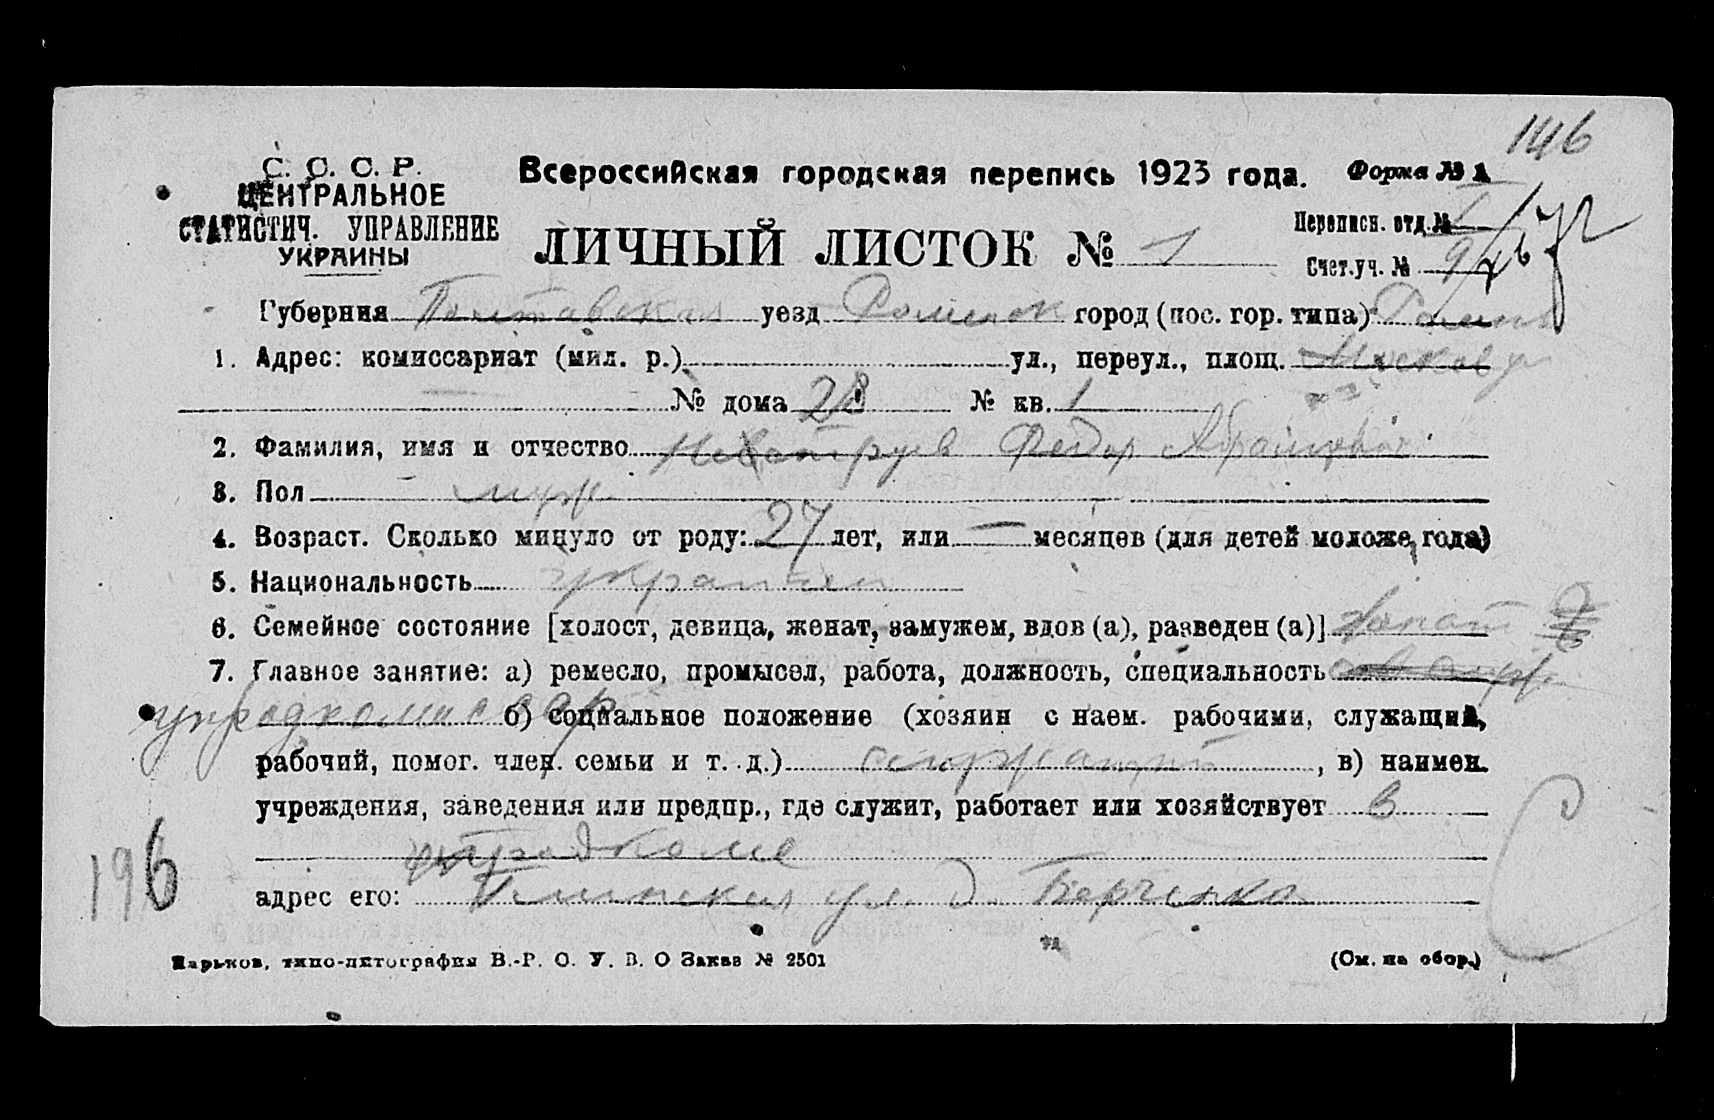 146
С. С. С. Р.
ЦЕНТРАЛЬНОЕ
СТАТИСТИЧ. УПРАВЛЕНИЕ
УКРАИНЫ
Всероссийская городская перепись 1923 года. Форма № 1
ЛИЧНЫЙ ЛИСТОК № 1
Переписн. отд. №
Счет. уч. №
Губерния Полтавская уезд Роменск город (пос. гор. типа) Ромны
1. Адрес: комиссариат (мил. р.) ул., переул., площ. Москов
№ дома 28 № кв. 1
2. Фамилия, имя и отчество Федор Абрамович
3. Пол муж
4. Возраст. Сколько минуло от роду: 27 лет, или — месяцев (для детей моложе 1 года)
5. Национальность украинец
6. Семейное состояние [холост, девица, женат, замужем, вдов (а), разведен (а)] женат
7. Главное занятие: а) ремесло, промысел, работа, должность, специальность
упродкомиссар б) социальное положение (хозяин с наем. рабочими, служащий,
рабочий, помог. член. семьи и т. д.) служащий, в) наимен.
учреждения, заведения или предпр., где служит, работает или хозяйствует в
упродкоме
адрес его: ул. д.
196
Харьков, типо-литография В.-Р. О. У. В. О Заказ № 2501
(См. на обор.)